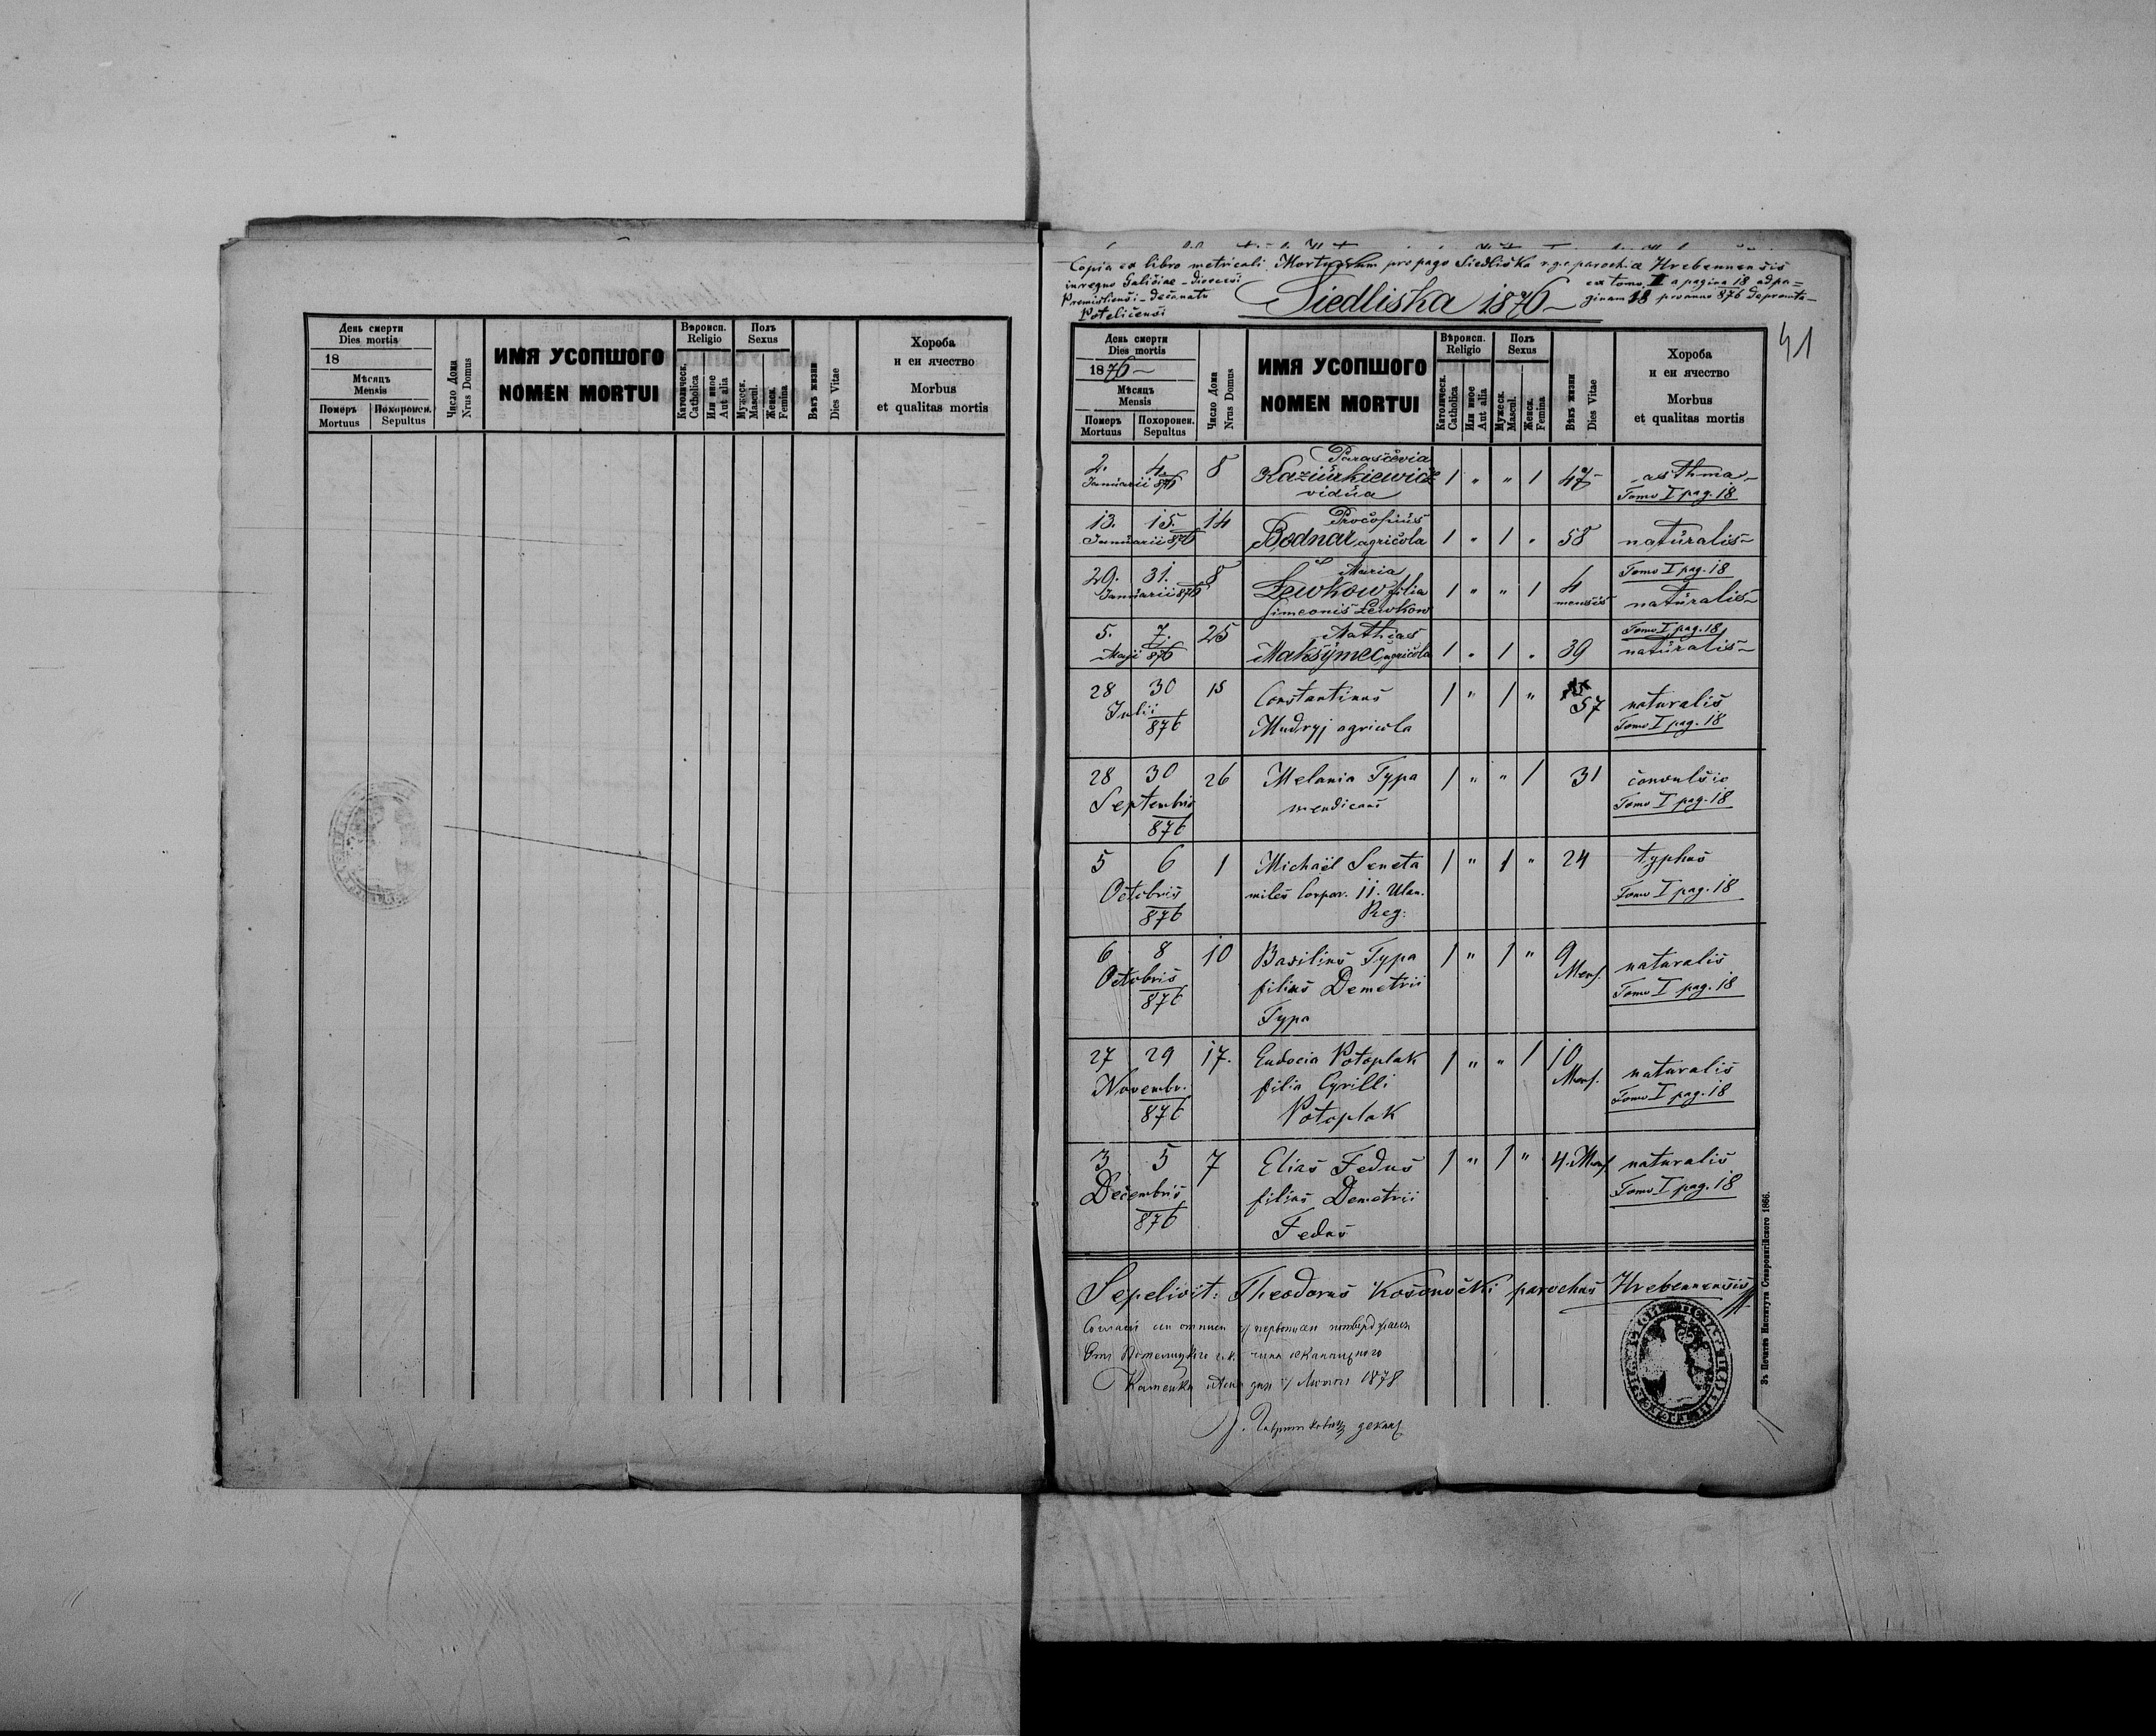 День смерти
Dies mortis
18
Мѣсяцъ
Mensis
Померъ
Mortuus
Похоронен.
Sepultus
Число Дома
Nrus Domus
ИМЯ УСОПШОГО
NOMEN MORTUI
Вѣроисп.
Religio
Католическ.
Catholica
Или иное
Aut alia
Полъ
Sexus
Мужеск.
Mascul.
Женск.
Femina
Вѣкъ жизни
Dies Vitae
Хороба
и еи ячество
Morbus
et qualitas mortis
Copia ex libro metricali Mortuorum pro pago Siedliska r.g.c. parochiae Hrebennensis
in regno Galiciae - dioecesi
Premisliensi - decanatu
Poteličensi
Siedliska 1876
ex tomo I a pagina 18 ad pa=
ginam 18 pro anno 876 deprompta
41
День смерти
Dies mortis
1876
Мѣсяцъ
Mensis
Померъ
Mortuus
Похоронен.
Sepultus
Число Дома
Nrus Domus
ИМЯ УСОПШОГО
NOMEN MORTUI
Вѣроисп.
Religio
Католическ.
Catholica
Или иное
Aut alia
Полъ
Sexus
Мужеск.
Mascul.
Женск.
Femina
Вѣкъ жизни
Dies Vitae
Хороба
и еи ячество
Morbus
et qualitas mortis
Parascevia
2. 4. 8 Kaziurkiewicz 1 " " 1 47 asthma
Januarii 876 vidua Tomo I pag. 18
Procopius
13. 15. 14 Bodnar agricola 1 " 1 " 58 naturalis
Januarii 876
Maria Tomo I pag. 18
29. 31. 8 Lewkow filia 1 " " 1 4 mensis naturalis
Januarii 876 Simeonis Lewkow
Mathias Tomo I pag. 18
5. 7. 25 Maksymec agricola 1 " 1 " 39 naturalis
Maji 876
28 30 15 Constantinus 1 " 1 " 57 naturalis
Julii 876 Mudryj agricola Tomo I pag. 18
28 30 26 Melania Typa 1 " " 1 31 convulsio
Septembris mendicans Tomo I pag. 18
876
5 6 1 Michaël Seneta 1 " 1 " 24 typhus
Octobris miles Corpor. ii. Ulan. Tomo I pag. 18
876 Reg:
6 8 10 Basilius Typa 1 " 1 " 9 Mens. naturalis
Octobris filius Demetrii Tomo I pag. 18
876 Typa
27 29 17. Eudocia Potoplak 1 " " 1 10 Mens. naturalis
Novembr. filia Cyrilli Tomo I pag. 18
876 Potoplak
3 5 7 Elias Fedus 1 " 1 " 4. Mens. naturalis
Decembris filius Demetrii Tomo I pag. 18
876 Fedus
Sepelivit: Theodorus Kosonocki parochus Hrebennensis
1878
декан
Зъ Печатнѣ Института Ставропигійского 1866.